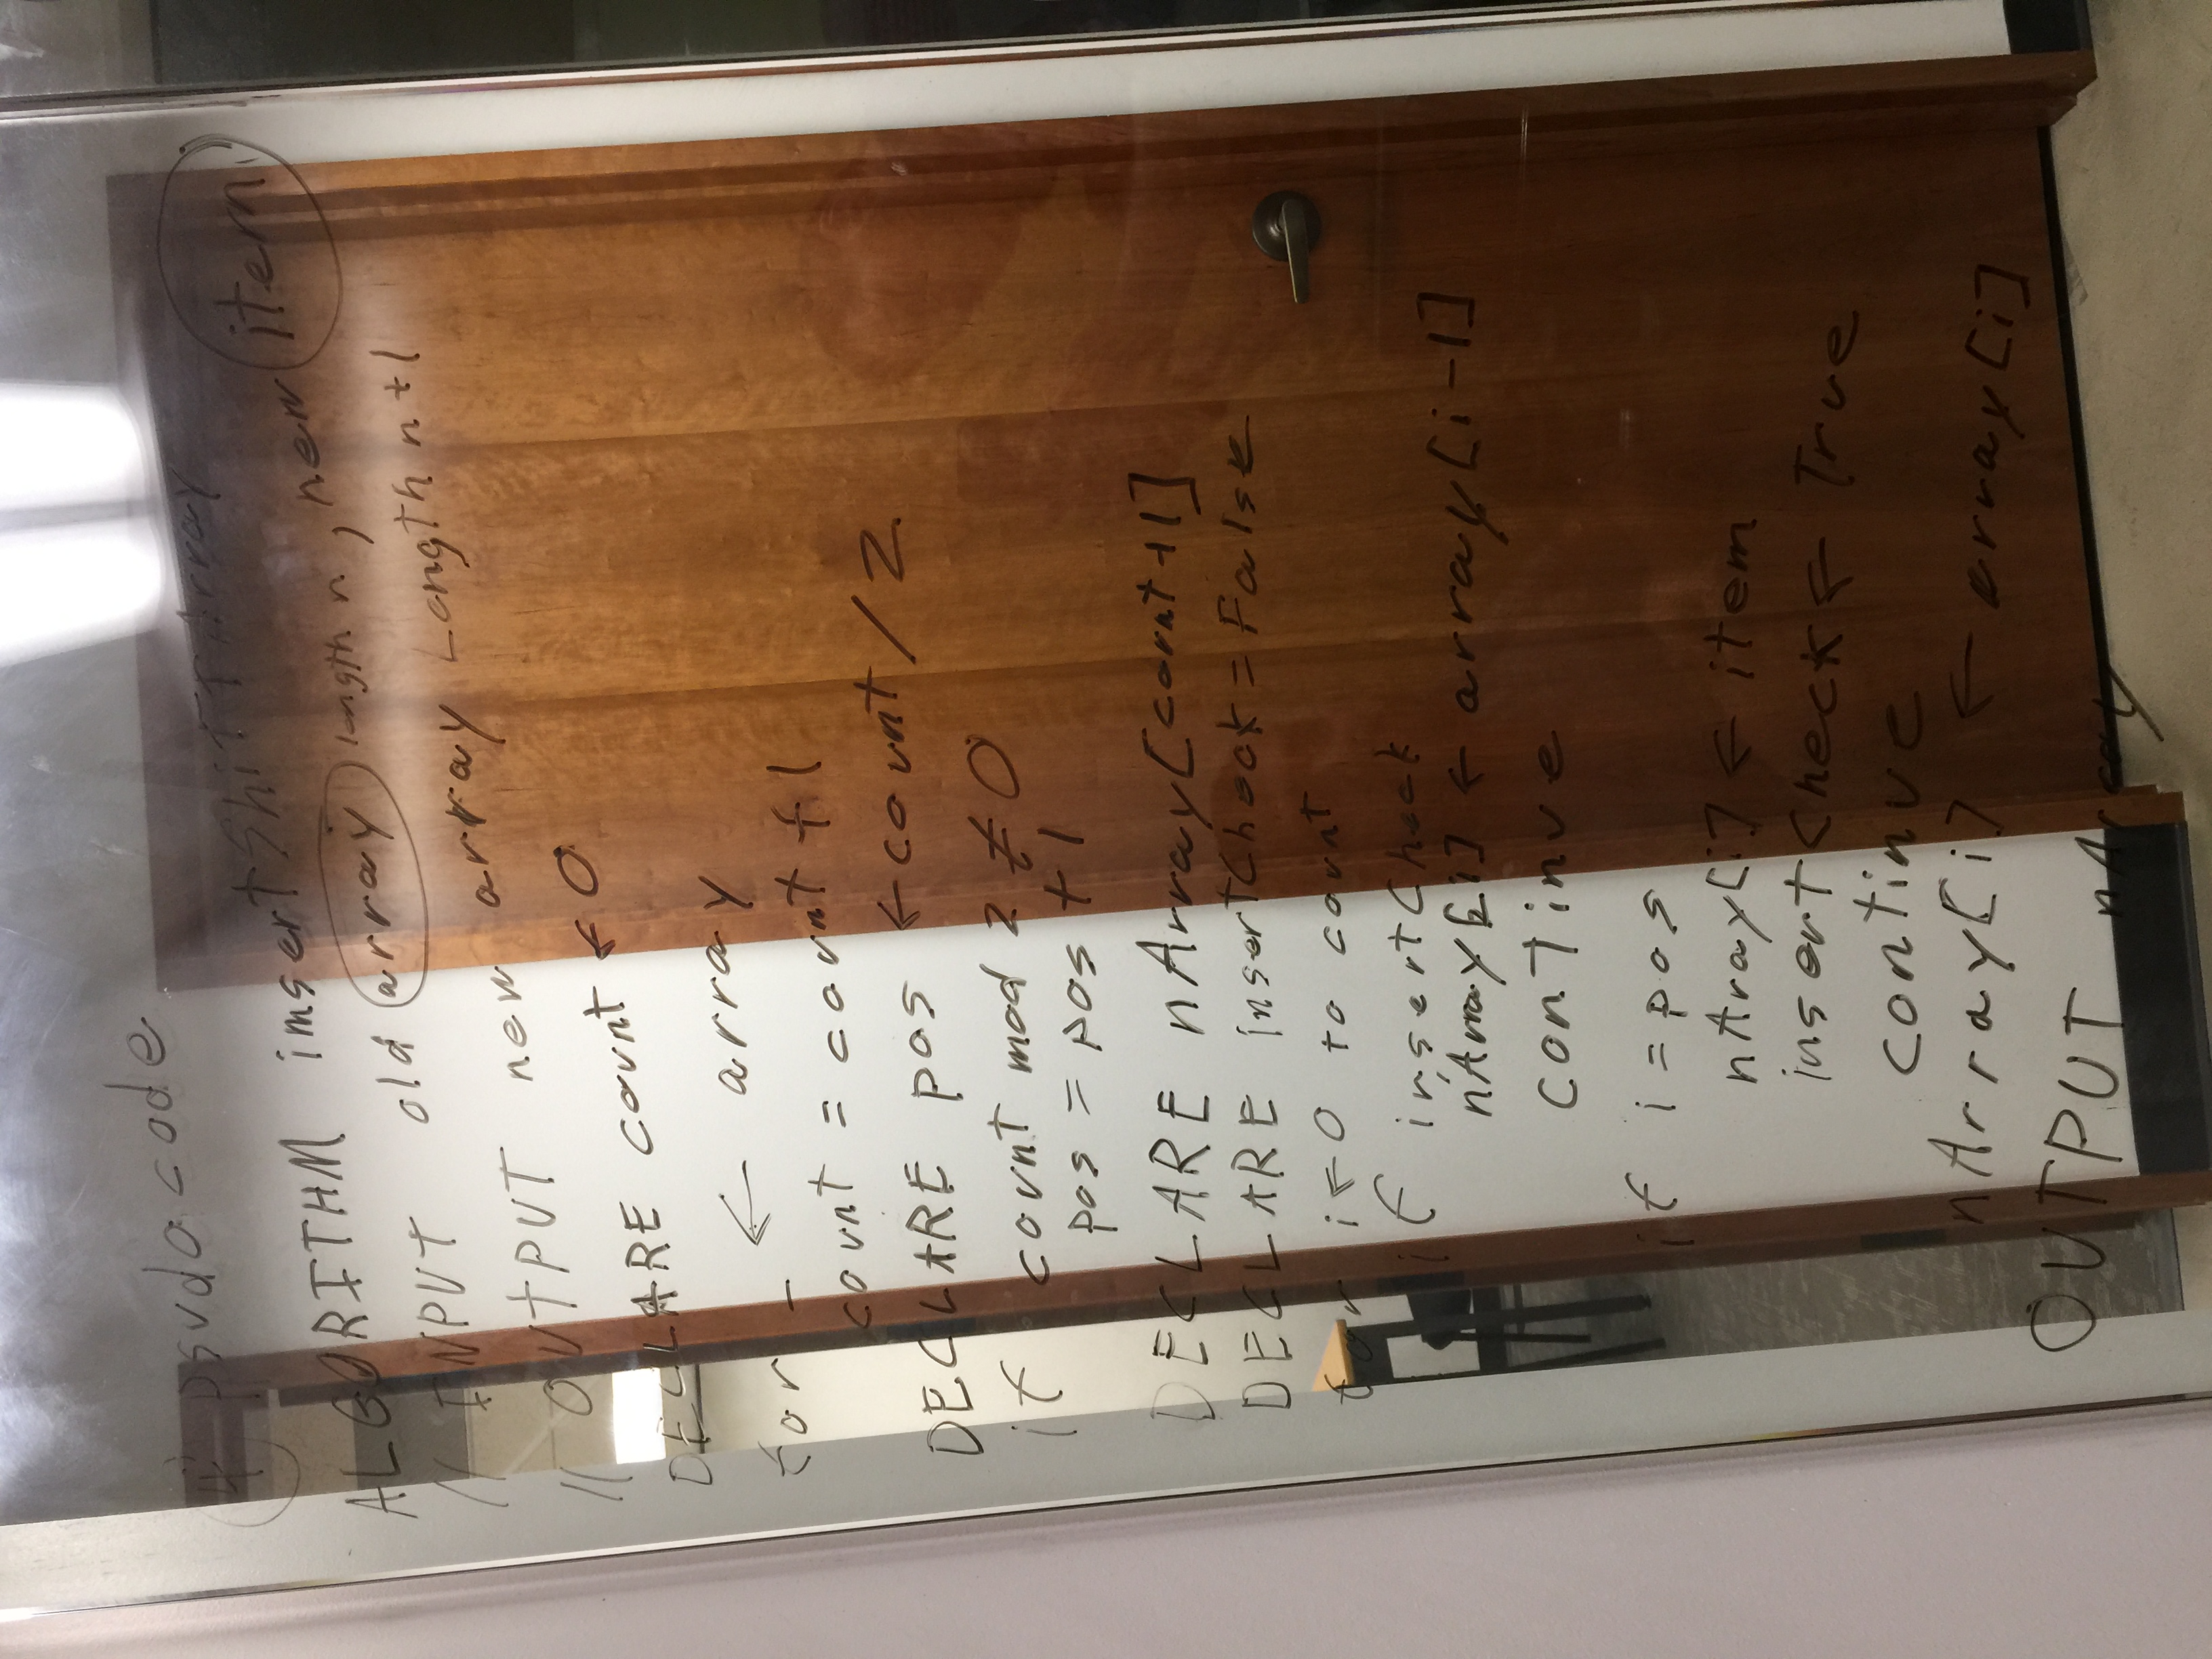 4) psudocode
ALGORITHM imsertShiftArray
// INPUT old array length n, new item
// OUTPUT new array Length n+1
DECLARE count ← 0
for _ ← array
count = count + 1
DECLARE pos ← count / 2
if count mod 2 ≠ 0
pos = pos + 1
DECLARE nArray[count+1]
DECLARE insertCheck = False
for i ← 0 to count
if insertCheck
nArray[i] ← array[i-1]
continue
if i = pos
nAray[i] ← item
insertCheck ← True
continue
nArray[i] ← array[i]
OUTPUT nArray